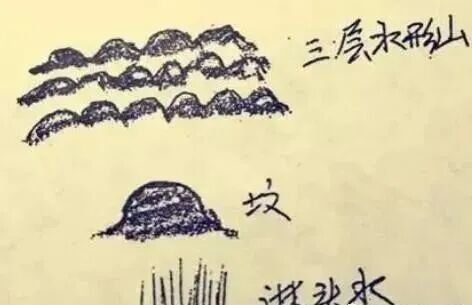 三层水形山
坟
进头水